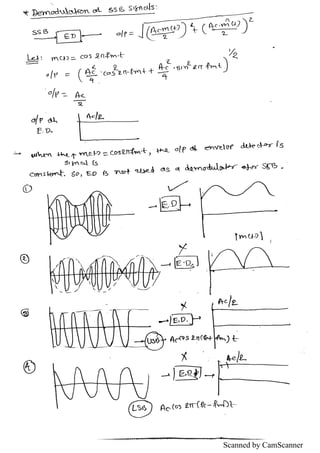 * Demodulation of SSB Signals:
SSB → ED → o/p = √((Ac m(t)/2)² + (Ac m̂(t)/2)²)
Let: m(t) = cos 2πfmt
o/p = (Ac²/4 cos² 2πfmt + Ac²/4 · sin² 2πfmt)^1/2
o/p = Ac/2
o/p of E.D. Ac/2
→ when the m(t) = cos2πfmt, the o/p of envelop detector is
signal is
constant. So, ED is not used as a demodulator after SSB.
① → E.D →
|m(t)|
② → E.D. →
③ → E.D. → Ac/2
USB → Ac cos 2π(fc + fm) t
④ → E.D → Ac/2
LSB Ac cos 2π(fc - fm)t
Scanned by CamScanner